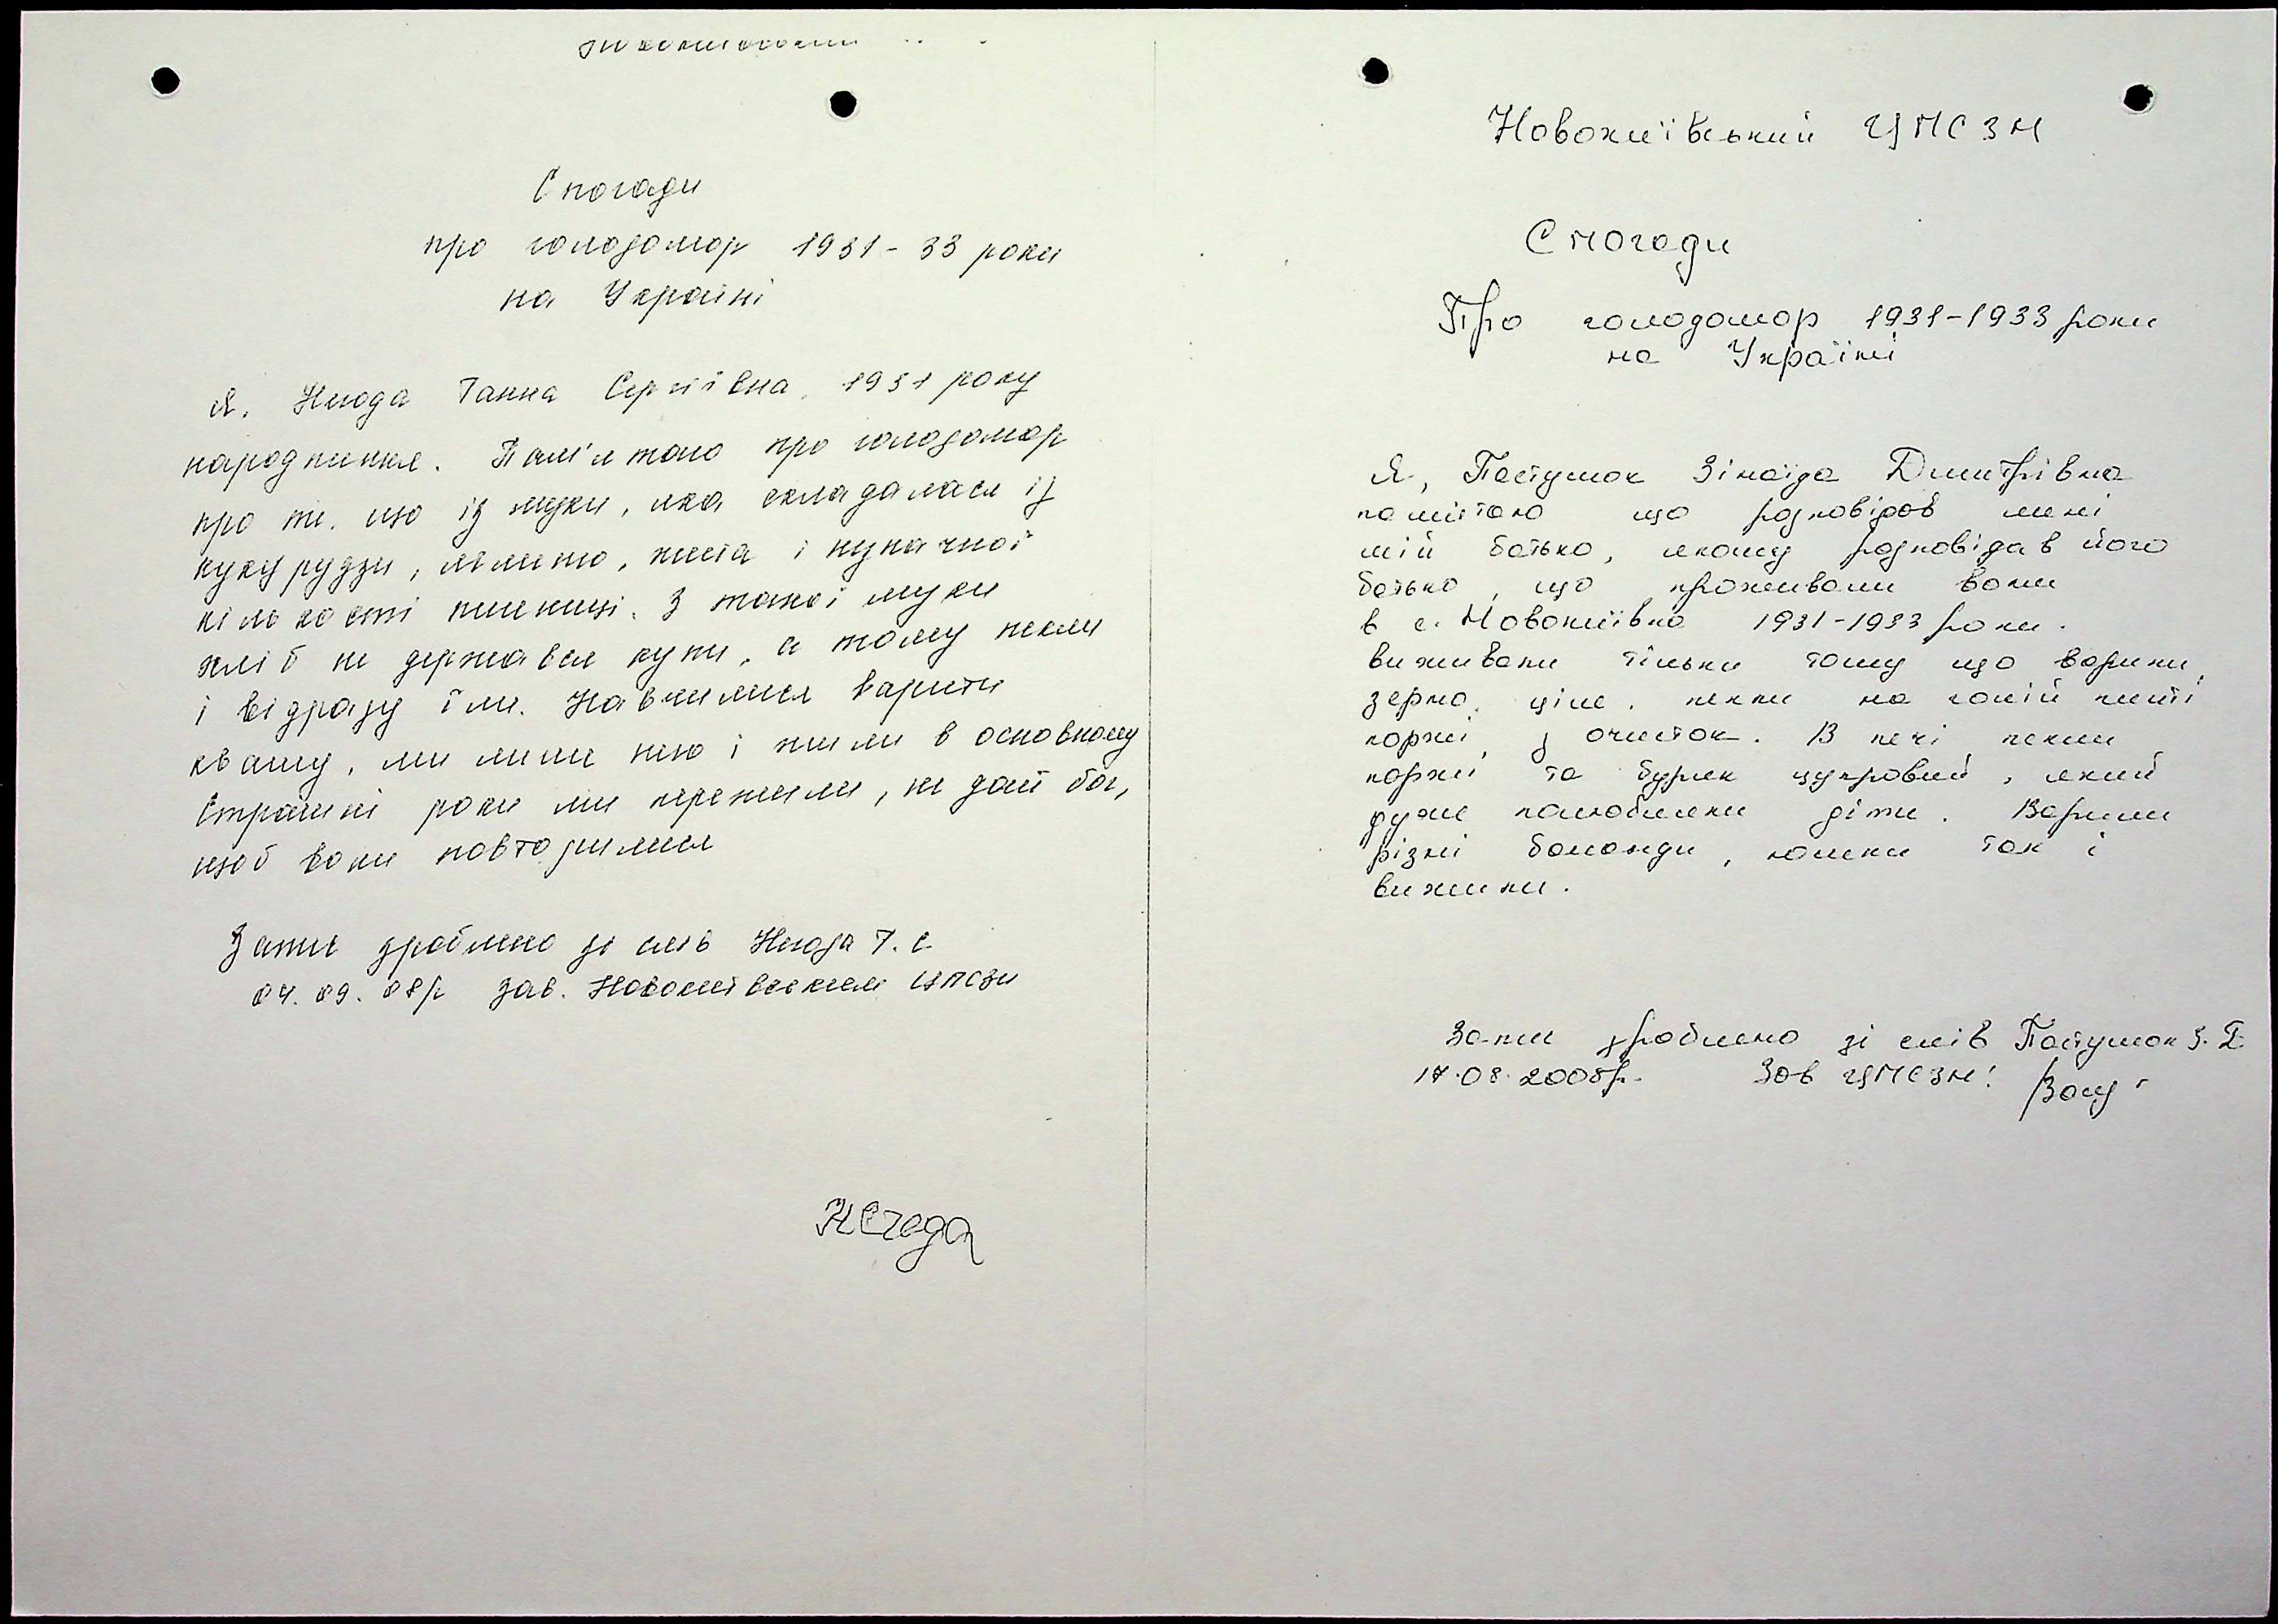 Спогади
про голодомор 1931-33 роки
на Україні
Я. Негода Ганна Сергіївна, 1931 року
народження. Пам'ятаю про голодомор
про те, що із муки, яка складалася із
кукурудзи, ячменю, жита і
кількості пшениці. З такої муки
хліб не держався купи, а тому пекли
і відразу їли. Навчилися варити
квашу, ми лише нею і жили в основному
Страшні роки ми пережили, не дай бог,
щоб вони повторилися
Запис зроблено зі слів Негода Г. С.
04. 09. 08р зав. Новокиївським ЦПСЗН
Негода
Новокиївський ЦПСЗН
Спогади
Про голодомор 1931-1933 роки
на Україні
Я, Пастушок Зінаїда Дмитрівна
памятаю що розповідав мені
мій батько, якому розповідав його
батько, що проживали вони
в с. Новокиївка 1931-1933 роки.
виживали тільки тому що варили
зерно ціле, пекли на голій плиті
коржі з очисток. В печі пекли
коржі та буряк цукровий, який
дуже полюбляли діти. Варили
різні баланди, юшки так і
вижили.
Запис зроблено зі слів Пастушок З. Д.
17.08.2008р. Зав ЦПСЗН: